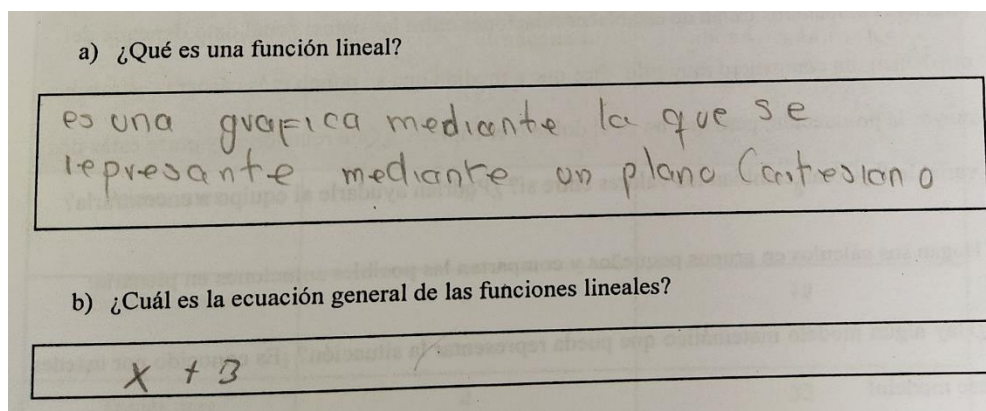 a) ¿Qué es una función lineal?
es una grafica mediante la que se
represante mediante un plano Cartresiano
b) ¿Cuál es la ecuación general de las funciones lineales?
x + 3